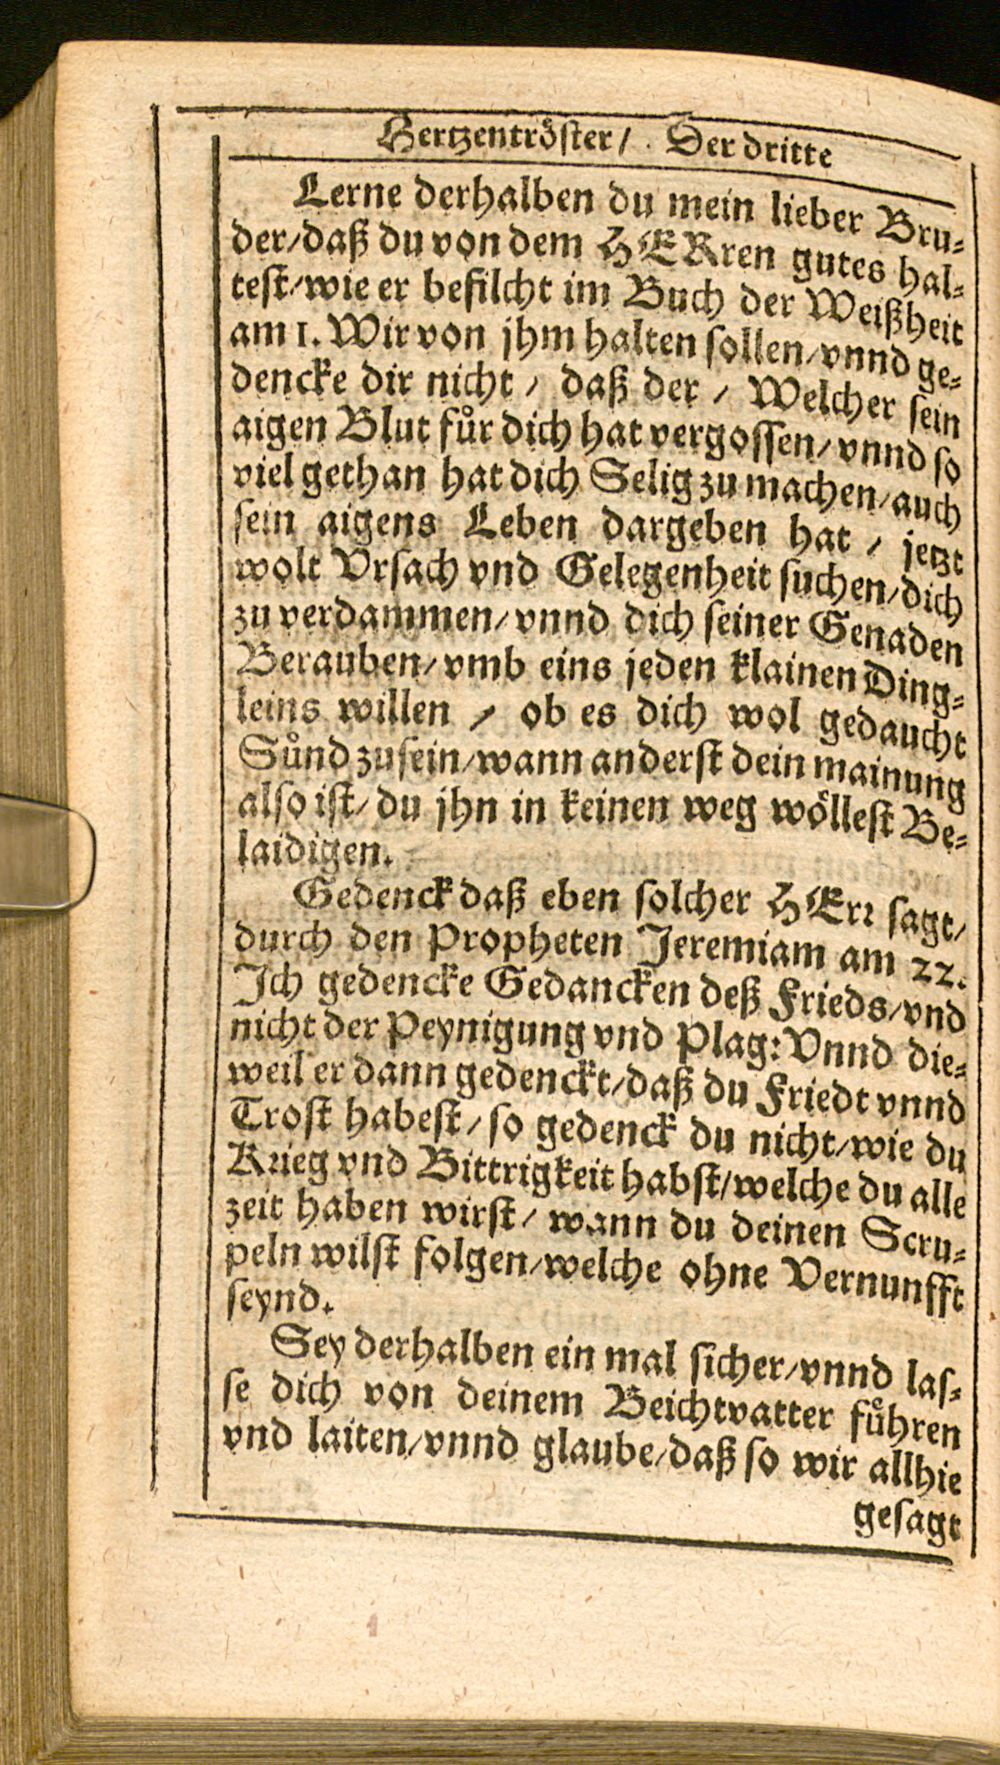 Hertzentröster/ Der dritte
Lerne derhalben du mein lieber Bru⸗
der/daß du von dem HERren gutes hal⸗
test/wie er befilcht im Buch der Weißheit
am 1. Wir von jhm halten sollen/vnnd ge⸗
dencke dir nicht / daß der / Welcher sein
aigen Blut fůr dich hat vergossen/vnnd so
viel gethan hat dich Selig zu machen/auch
sein aigens Leben dargeben hat / jetzt
wolt Vrsach vnd Gelegenheit suchen/dich
zu verdammen/vnnd dich seiner Genaden
Berauben/vmb eins jeden klainen Ding⸗
leins willen / ob es dich wol gedaucht
Sůnd zu sein/wann anderst dein mainung
also ist/du jhn in keinen weg wöllest Be⸗
laidigen.
Gedenck daß eben solcher HErr sagt/
durch den Propheten Jeremiam am 22.
Ich gedencke Gedancken deß Frieds/vnd
nicht der Peynigung vnd Plag: Vnnd die⸗
weil er dann gedenckt/daß du Friedt vnnd
Trost habest/so gedenck du nicht/wie du
Krieg vnd Bittrigkeit habst/welche du alle
zeit haben wirst/ wann du deinen Scru⸗
peln wilst folgen/welche ohne Vernunfft
seynd.
Sey derhalben ein mal sicher/vnnd las⸗
se dich von deinem Beichtvatter fůhren
vnd laiten/vnnd glaube/daß so wir allhie
gesagt